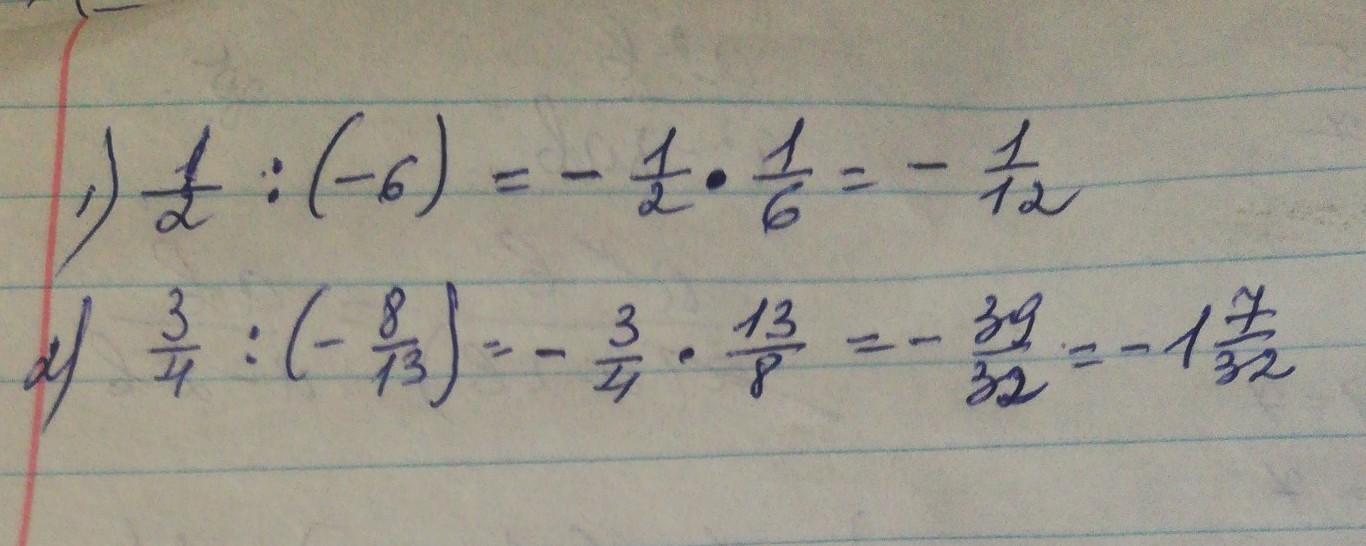 1) 1/2 : (-6) = - 1/2 • 1/6 = - 1/12
2) 3/4 : (- 8/13) = - 3/4 · 13/8 = - 39/32 = - 1 7/32